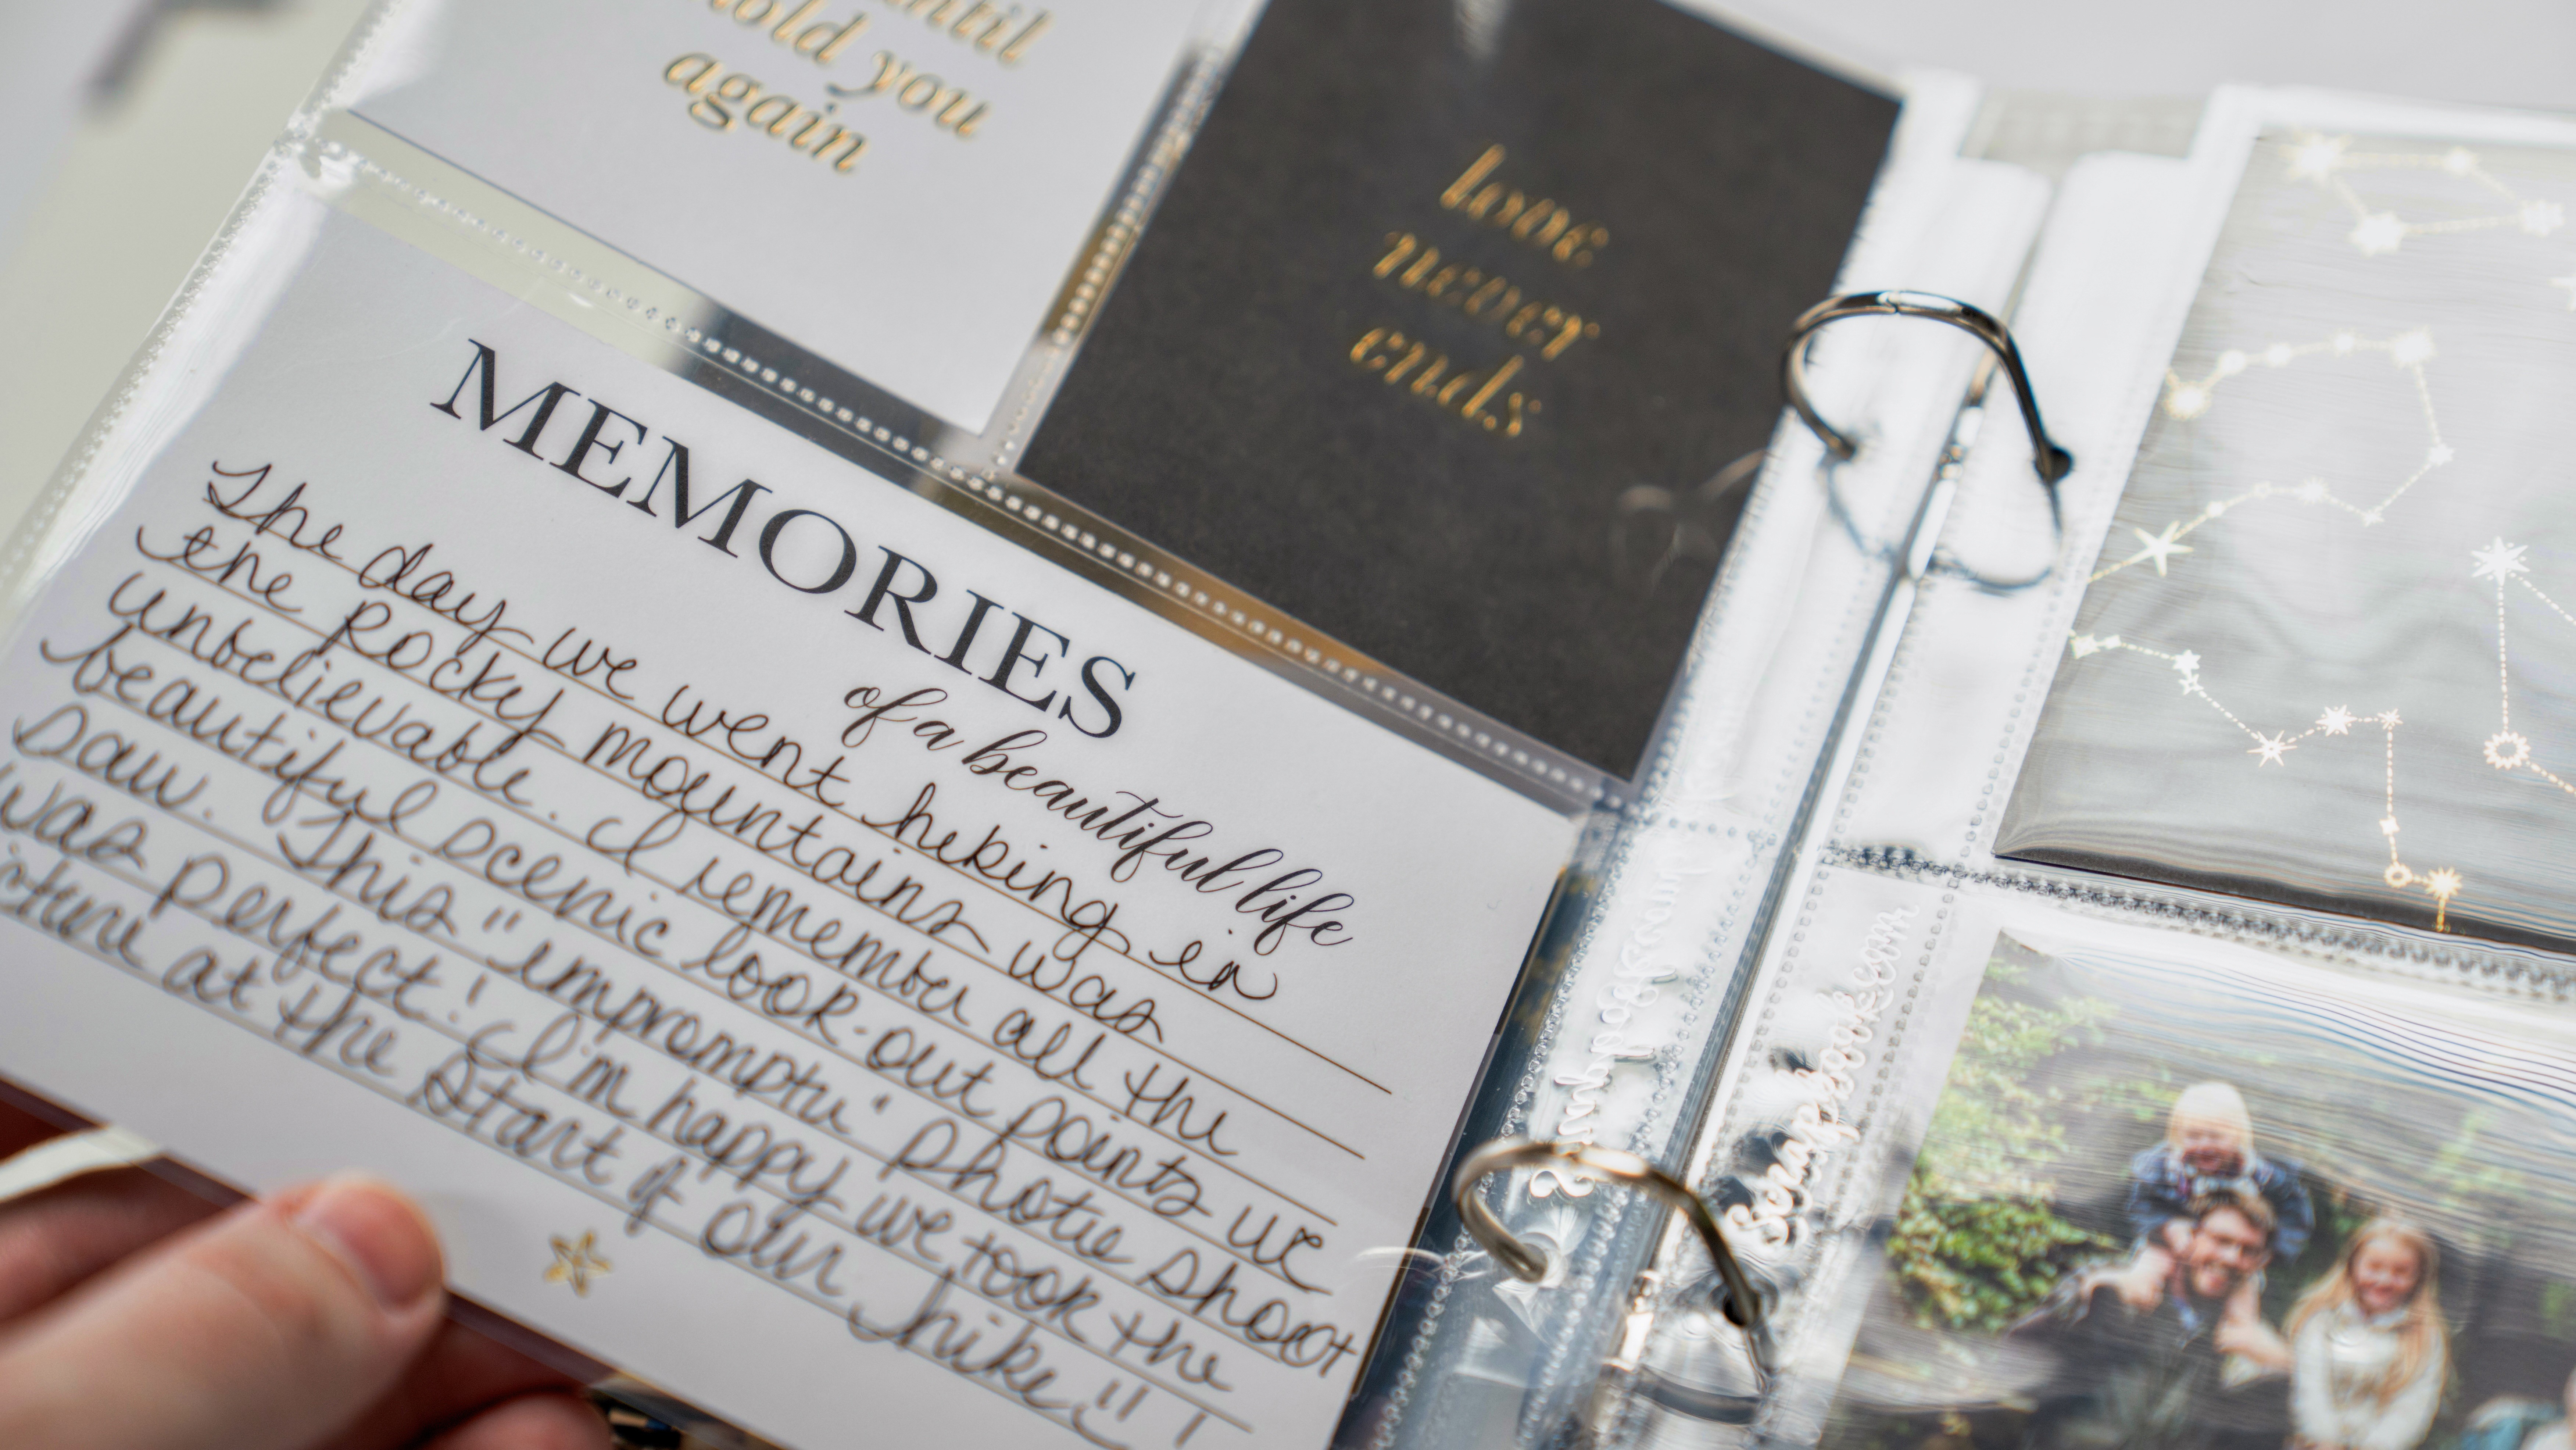 until
hold you
again
love
never
ends
MEMORIES
of a beautiful life
The day we went hiking in
the Rocky mountains was
unbelievable. I remember all the
beautiful scenic look-out points we
saw. This "impromptu" photo shoot
was perfect! I'm happy we took the
cture at the start of our hike!!
Scrapbook.com
Scrapbook.com